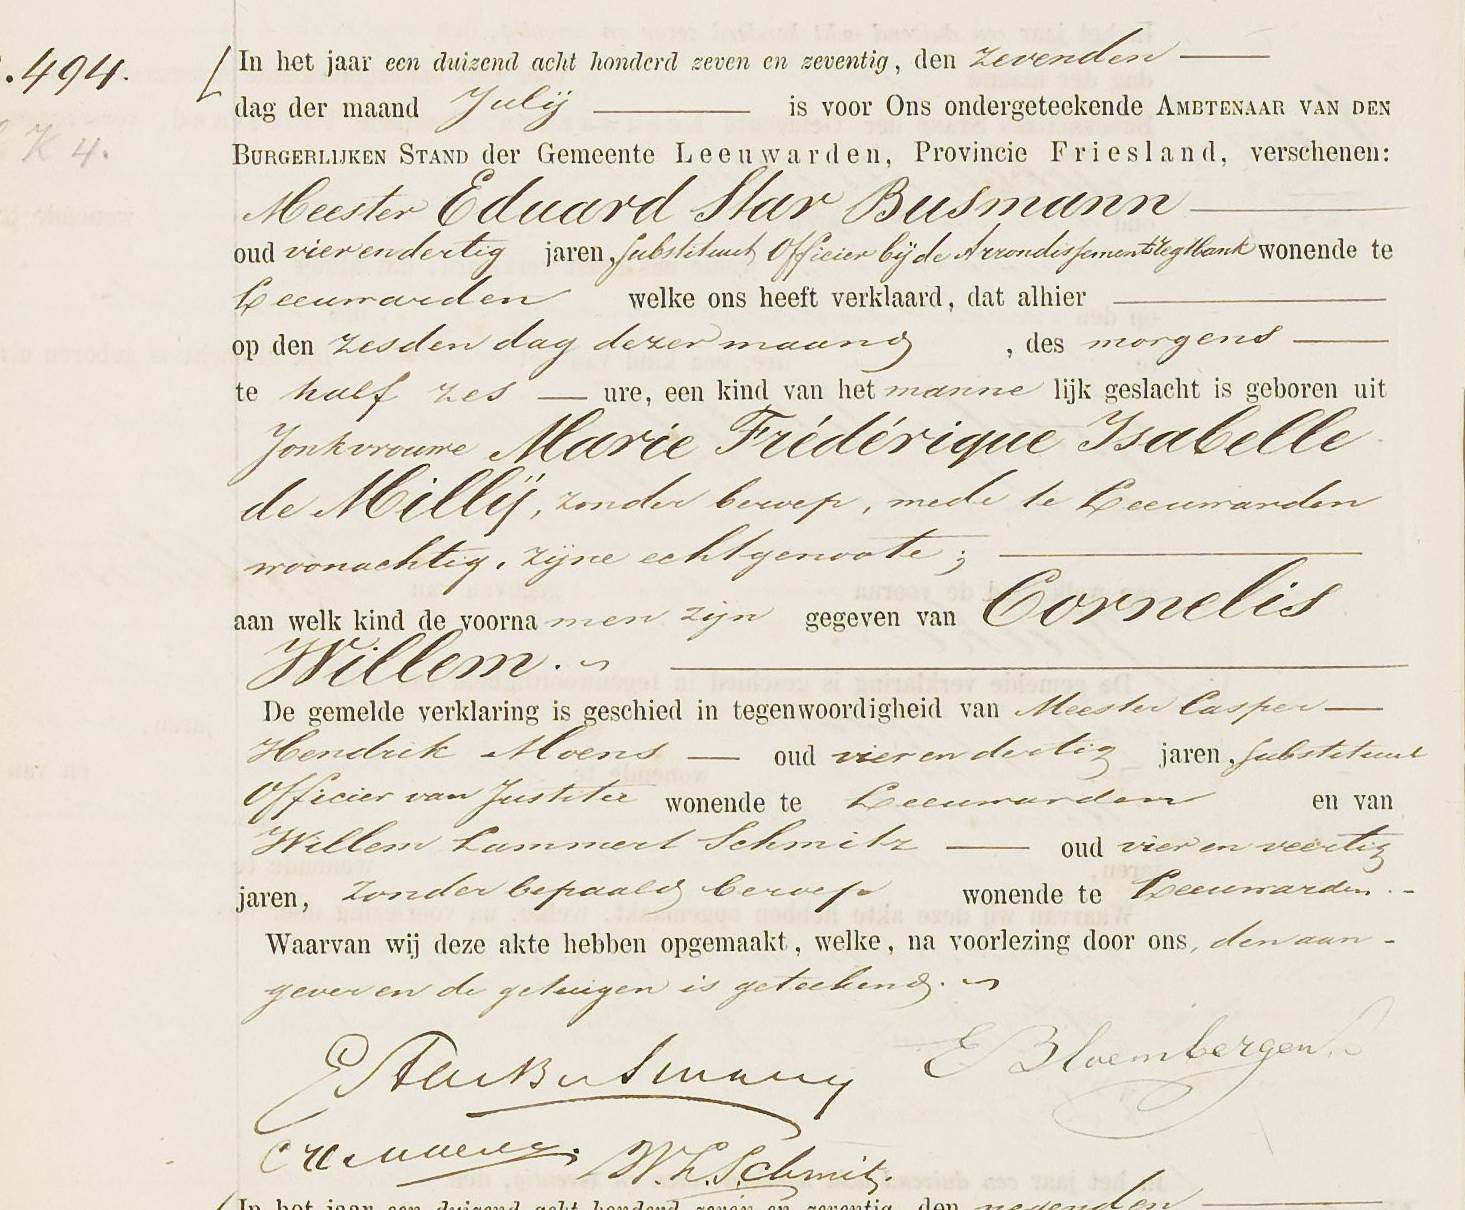 .494.
In het jaar een duizend acht honderd zeven en zeventig, den zevenden
dag der maand Julij is voor Ons ondergeteekende AMBTENAAR VAN DEN
K 4.
BURGERLIJKEN STAND der Gemeente Leeuwarden, Provincie Friesland, verschenen:
Meester Eduard Star Busmann
oud vier en dertig jaren, Substituut Officier bij de Arrondissements Regtbank wonende te
Leeuwarden welke ons heeft verklaard, dat alhier
op den zesden dag dezer maand, des morgens
te half zes ure, een kind van het mannelijk geslacht is geboren uit
Jonkvrouwe Marie Frédérique Isabelle
de Millij, zonder beroep, mede te Leeuwarden
woonachtig, zijne echtgenoote;
aan welk kind de voornamen zijn gegeven van Cornelis
Willem.
De gemelde verklaring is geschied in tegenwoordigheid van Meester Casper
Hendrik Moens oud vier en dertig jaren, Substituut
Officier van Justitie wonende te Leeuwarden en van
Willem Lammert Schmitz oud vier en veertig
jaren, zonder bepaald beroep wonende te Leeuwarden.
Waarvan wij deze akte hebben opgemaakt, welke, na voorlezing door ons, den aan-
gever en de getuigen is geteekend.
E Star Busmann E Bloembergen
CH Moens. W. L. Schmitz.
In het jaar een duizend acht honderd zeven en zeventig, den negenden